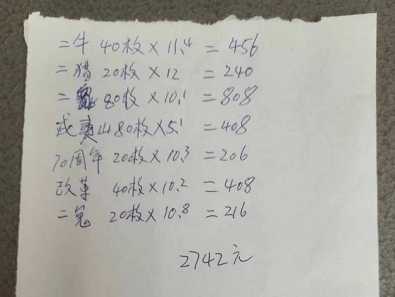 二牛 40枚×11.4=456
二猪 20枚×12=240
二鼠 80枚×10.1=808
武夷山80枚×5.1=408
70周年 20枚×10.3=206
改革 40枚×10.2=408
二兔 20枚×10.8=216
2742元